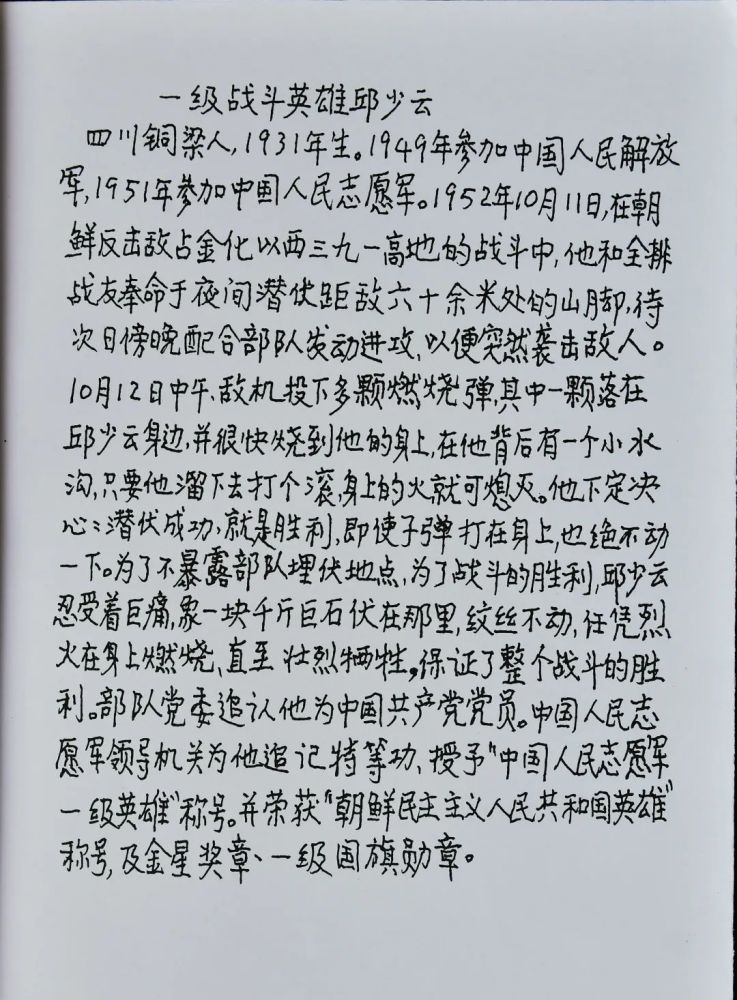 一级战斗英雄邱少云
四川铜梁人,1931年生。1949年参加中国人民解放
军,1951年参加中国人民志愿军。1952年10月11日,在朝
鲜反击敌占金化以西三九一高地的战斗中,他和全排
战友奉命于夜间潜伏距敌六十余米处的山脚,待
次日傍晚配合部队发动进攻,以便突然袭击敌人。
10月12日中午、敌机投下多颗燃烧弹,其中一颗落在
邱少云身边,并很快烧到他的身上,在他背后有一个小水
沟,只要他溜下去打个滚,身上的火就可熄灭。他下定决
心:潜伏成功,就是胜利,即使子弹打在身上,也绝不动
一下。为了不暴露部队埋伏地点,为了战斗的胜利,邱少云
忍受着巨痛,象一块千斤巨石伏在那里,纹丝不动,任凭烈
火在身上燃烧、直至壮烈牺牲。保证了整个战斗的胜
利。部队党委追认他为中国共产党党员。中国人民志
愿军领导机关为他追记特等功、授予"中国人民志愿军
一级英雄"称号。并荣获"朝鲜民主主义人民共和国英雄"
称号,及金星奖章、一级国旗勋章。